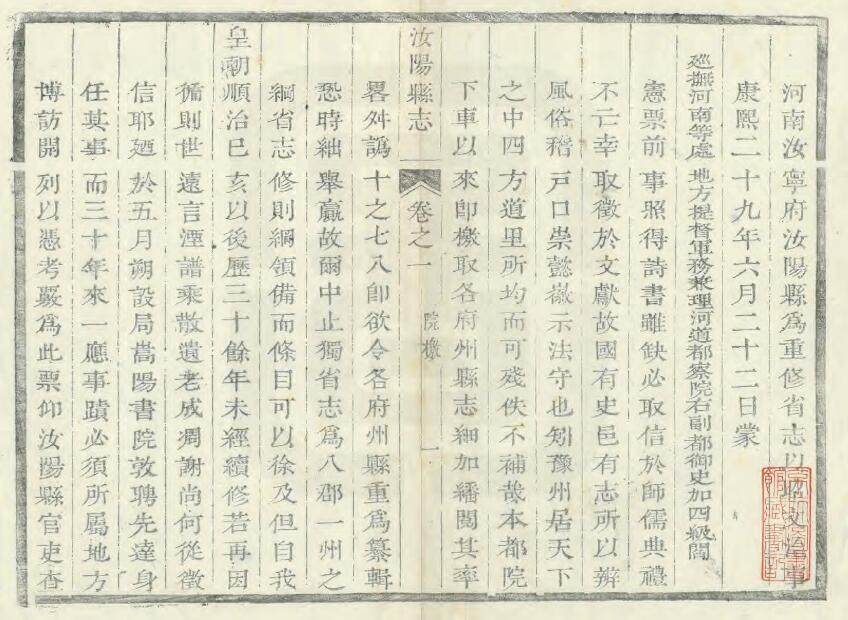 河南汝寧府汝陽縣爲重修省志以昭文治事
康熙二十九年六月二十二日蒙
廵撫河南等處地方提督軍務兼理河道都察院右副都御史加四級閻
憲票前事照得詩書雖缺必取信於師儒典禮
不亡幸取徵於文獻故國有史邑有志所以辨
風俗稽戸口崇懿徽示法守也矧豫州居天下
之中四方道里所均而可殘佚不補哉本都院
下車以來即檄取各府州縣志細加繙閲其率
畧舛譌十之七八即欲令各府州縣重爲纂輯
汝陽縣志 卷之一 院檄 一
恐時絀舉羸故爾中止獨省志爲八郡一州之
綱省志修則綱領備而條目可以徐及但自我
皇朝順治巳亥以後歷三十餘年未經續修若再因
循則世遠言湮譜乘散遺老成凋謝尚何從徵
信耶廼於五月朔設局嵩陽書院敦聘先達身
任其事而三十年來一應事蹟必須所屬地方
博訪開列以憑考覈爲此票仰汝陽縣官吏查